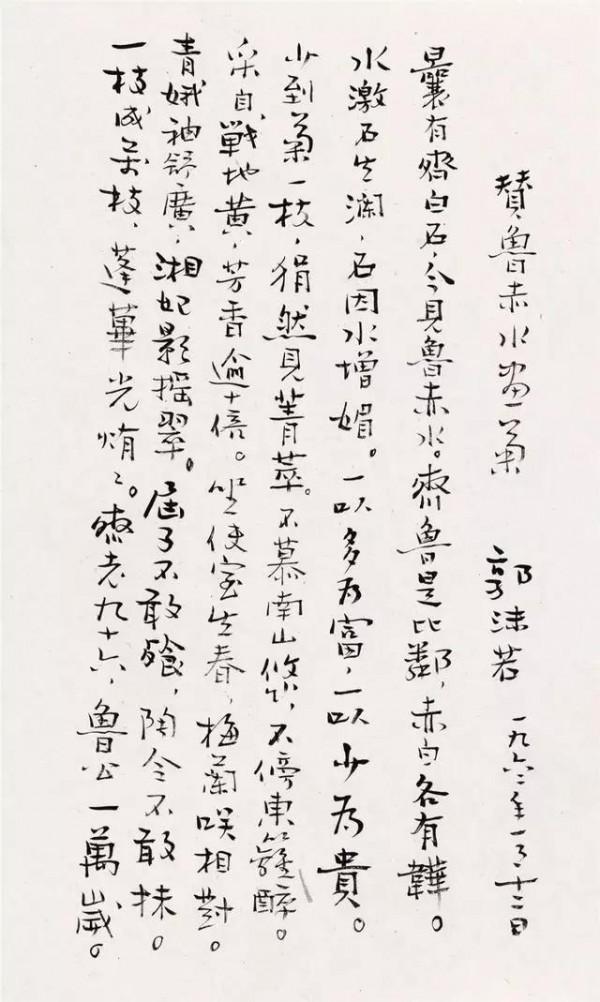 贊魯赤水画菊 郭沫若 一九六 年一月十二日
曩有齊白石，今見魯赤水。齊魯是比鄰，赤白各有韡。
水激石生澜，石因水增媚。一以多为富，一以少为貴。
少到菊一枝，狷然見菁萃。不慕南山悠，不傍東籬醉。
采自戰地黄，芳香逾十倍。坐使室生春，梅蘭咲相對。
青娥袖舒廣，湘妃影摇翠。屈子不敢飱，陶令不敢抹。
一枝成万枝，蓬蓽光焴々。齊老九十六，魯公一萬歲。